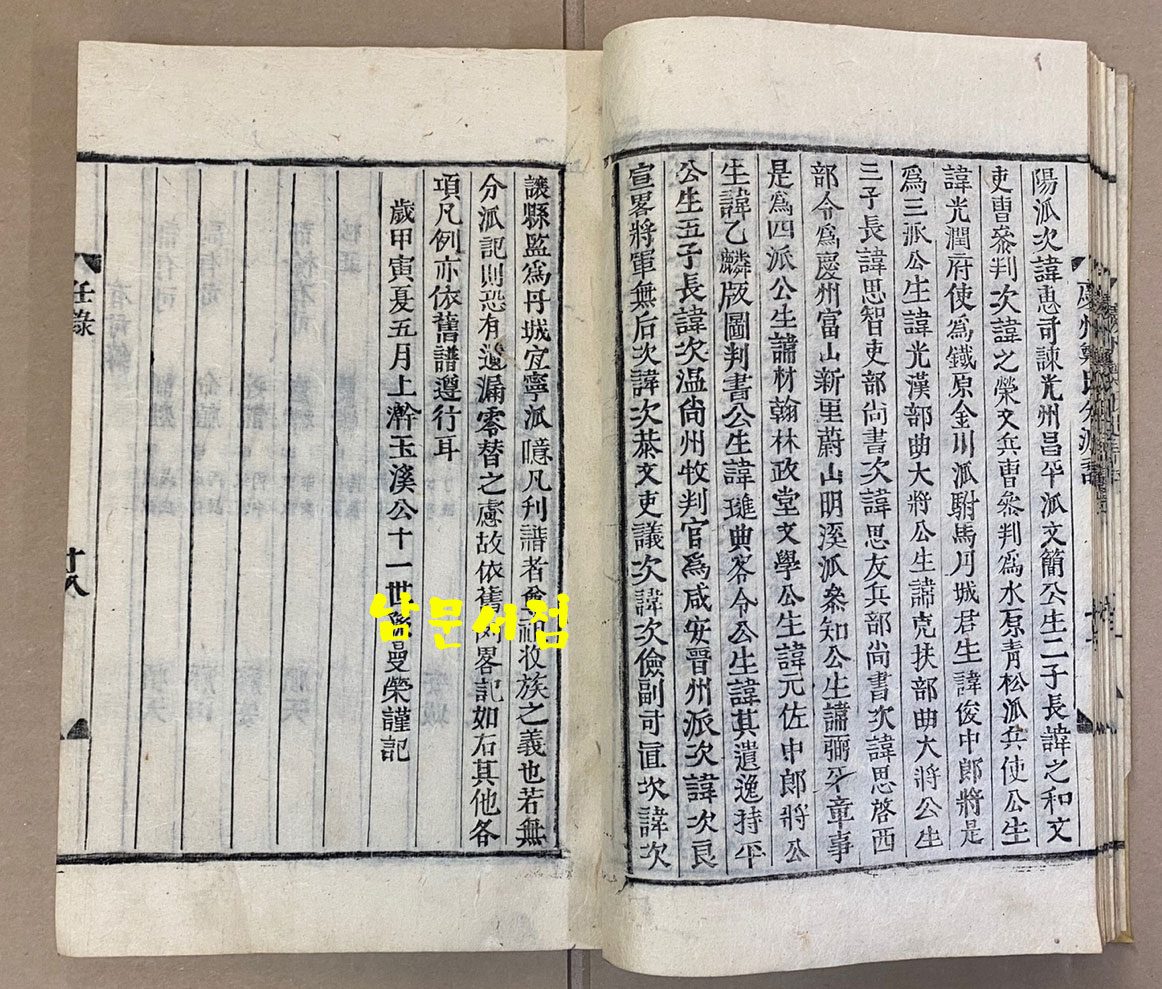 陽派次諱惠司諫光州昌平派文簡公生二子長諱之和文
吏曺叅判次諱之榮文兵曺叅判爲水原靑松派兵使公生
諱光潤府使爲鐵原金川派駙馬月城君生諱俊中郎將是
爲三派公生諱光漢部曲大將公生諱克扶部曲大將公生
三子長諱思智吏部尙書次諱思友兵部尙書次諱思啓西
部令爲慶州富山新里蔚山明溪派叅知公生諱彌平章事
是爲四派公生諱材翰林政堂文學公生諱元佐中郎將公
生諱乙麟版圖判書公生諱璡典客令公生諱其遺逸持平
公生五子長諱次温尙州牧判官爲咸安晉州派次諱次良
宣畧將軍無后次諱次恭文吏議次諱次儉副司直次諱次
讓縣監爲丹城宜寧派噫凡刋譜者尊祖收族之義也若無
分派記則恐有遺漏零替之慮故依舊例畧記如右其他各
項凡例亦依舊譜遵行耳
歲甲寅夏五月上澣玉溪公十一世孫曼榮謹記
任錄
十八
남문서점